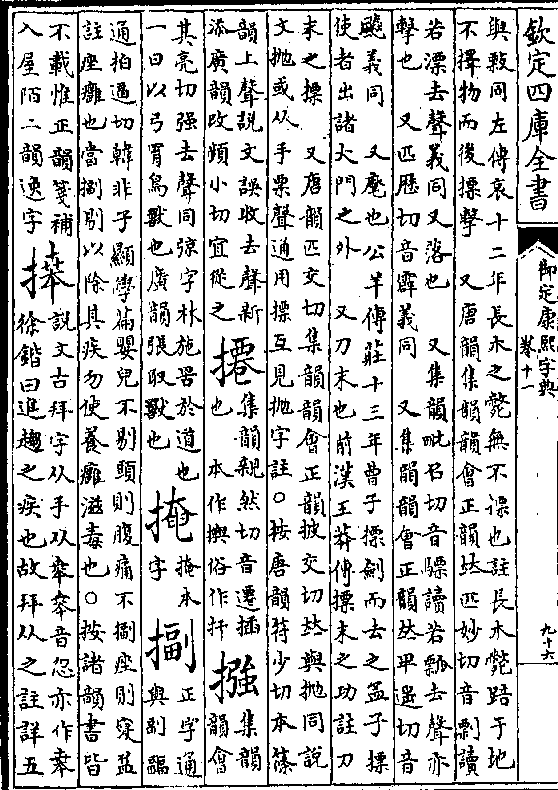 欽定四庫全書
御定康熙字典
卷十一
九十六
與㪍同左傳哀十二年長木之斃無不摽也註長木斃踣于地
不擇物而後摽擊　又唐韻集韻韻會正韻𠀤匹妙切音剽讀
若漂去聲義同又落也　又集韻毗召切音驃讀若瓢去聲亦
擊也　又匹歷切音霹義同　又集韻韻會正韻𠀤卑遥切音
飇義同　又麾也公羊傳莊十三年曹子摽劍而去之孟子摽
使者出諸大門之外　又刀末也前漢王莽傳摽末之功註刀
末之摽　又唐韻匹交切集韻韻會正韻披交切𠀤與抛同說
文抛或从手票聲通用摽互見抛字註○按唐韻符少切本篠
韻上聲說文誤收去聲新
添廣韻改頻小切宜從之
㩊
集韻親然切音遷插
也　本作㩌俗作扦
摾
集韻韻會
其亮切强去聲同弶字林施罟於道也
一曰以弓罥鳥獸也廣韻張取獸也
㩅
掩本
字
㨽
正字通
與副臨
通拍逼切韓非子顯學篇嬰兒不剔頭則腹痛不㨽痤則寖益
註痤癰也當㨽剔以除其疾勿使養癰滋毒也○按諸韻書皆
不載惟正韻箋補
入屋陌二韻逸字
𢳎
說文古拜字从手以𠦪𠦪音忽亦作𠦪
徐鍇曰進趨之疾也故拜从之註詳五